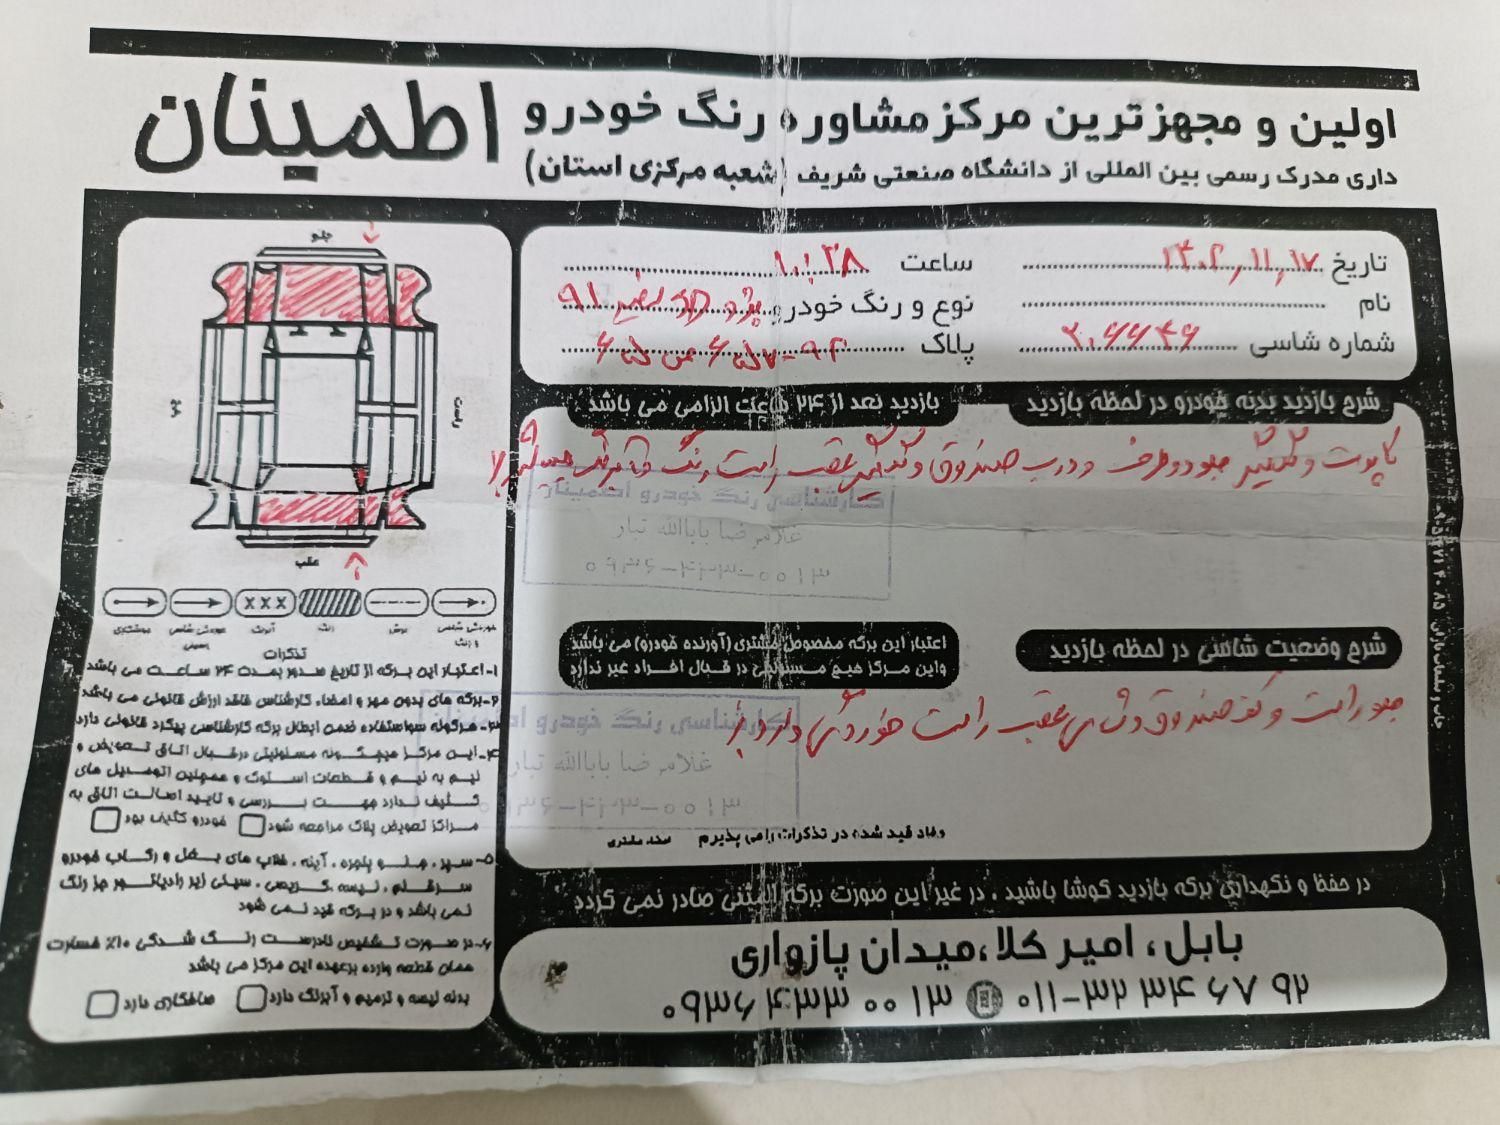 اولین و مجهزترین مرکز مشاوره رنگ خودرو اطمینان
داری مدرک رسمی بین المللی از دانشگاه صنعتی شریف (شعبه مرکزی استان)
تاریخ ۱۴۰۲,۱۱,۱۷
ساعت ۱۰:۳۸
نام
نوع و رنگ خودرو پژو سفید ۹۱
شماره شاسی ۲۰۶۶۴۶
پلاک
شرح بازدید بدنه خودرو در لحظه بازدید
بازدید بعد از ۲۴ ساعت الزامی می باشد
کاپوت و گلگیر جلو دو طرف و درب صندوق و گلگیر عقب راست رنگ
کارشناسی رنگ خودرو اطمینان
غلامرضا باباالله تبار
۰۹۳۶-۴۳۳-۰۰۱۳
شرح وضعیت شاسی در لحظه بازدید
اعتبار این برگه مخصوص مشتری (آورنده خودرو) می باشد
واین مرکز هیچ مسئولیتی در قبال افراد غیر ندارد
جلو راست و کف صندوق و شاسی عقب راست خوردگی دارد
کارشناسی رنگ خودرو اطمینان
غلامرضا باباالله تبار
۰۹۳۶-۴۳۳-۰۰۱۳
مفاد قید شده در تذکرات را می پذیرم امضاء مشتری
در حفظ و نگهداری برگه بازدید کوشا باشید ، در غیر این صورت برگه المثنی صادر نمی گردد
بابل، امیر کلا، میدان پازواری
۰۱۱-۳۲ ۳۴ ۶۷ ۹۲
۰۹۳۶ ۴۳۳ ۰۰ ۱۳
جلو
راست
چپ
عقب
xxx
رنگ
تذکرات
۱-اعتبار این برگه از تاریخ صدور بمدت ۲۴ ساعت می باشد
۲-برگه های بدون مهر و امضاء کارشناس فاقد ارزش قانونی می باشد
۳-هرگونه سواستفاده ضمن ابطال برگه کارشناسی پیگرد قانونی دارد
۴-این مرکز هیچگونه مسئولیتی درقبال اتاق تعویض و
نیم به نیم و قطعات استوک و همچنین اتومبیل های
کثیف ندارد جهت بررسی و تایید اصالت اتاق به
مراکز تعویض پلاک مراجعه شود خودرو کثیف بود
۵-سپر ، جلو پنجره ، آینه ، قلاب های بغل و رکاب خودرو
سرقلم ، لیسه گریسی ، سینی زیر رادیاتور جز رنگ
نمی باشد و در برگه قید نمی شود
۶-در صورت تشخیص نادرست رنگ شدگی ۱۰٪ خسارت
همان قطعه وارده برعهده این مرکز می باشد
بدنه لیسه و ترمیم و آبرنگ دارد صافکاری دارد